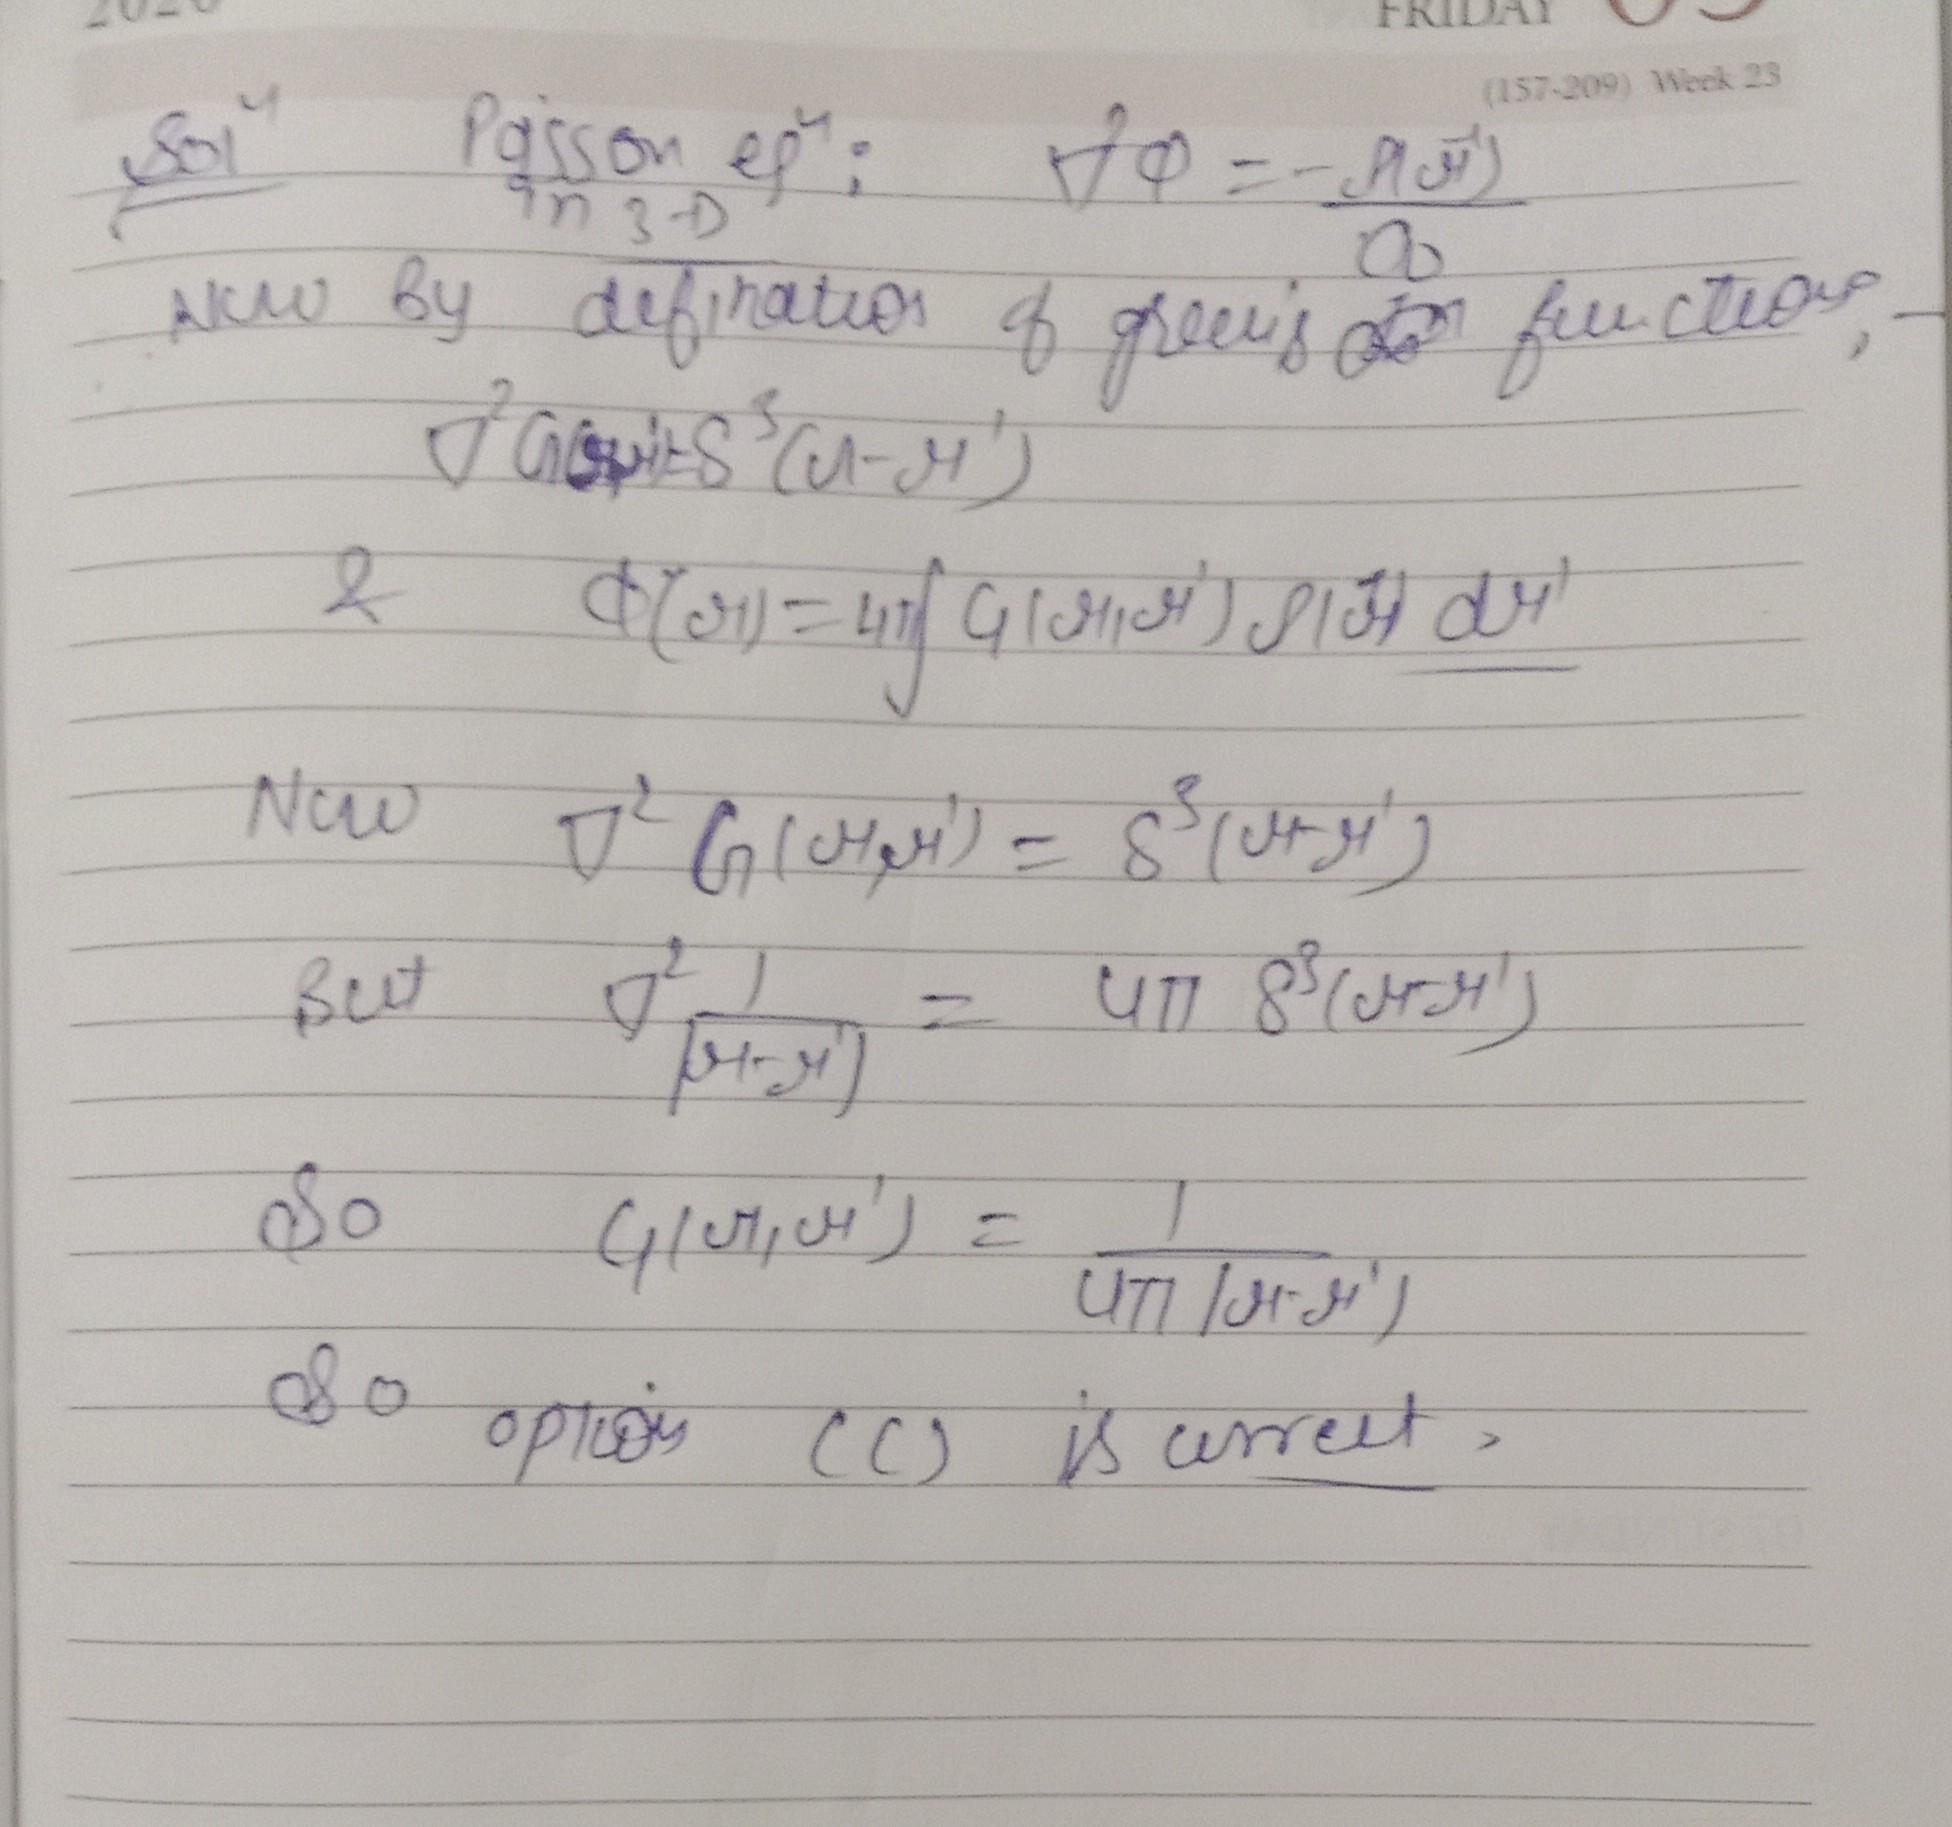 2020 FRIDAY 05
(157-209) Week 23
Solⁿ Poisson eqⁿ: ∇²Φ = -ρ(r⃗')/
in 3-D
Now By defination of green's function,
∇²G = δ³(r-r')
& Φ(r) = 4π∫ G(r,r') ρ(r⃗) dr'
Now ∇² G(r,r') = δ³(r-r')
But ∇² 1/|r-r'| = 4π δ³(r-r')
So G(r,r') = 1/4π|r-r'|
So option (C) is correct.